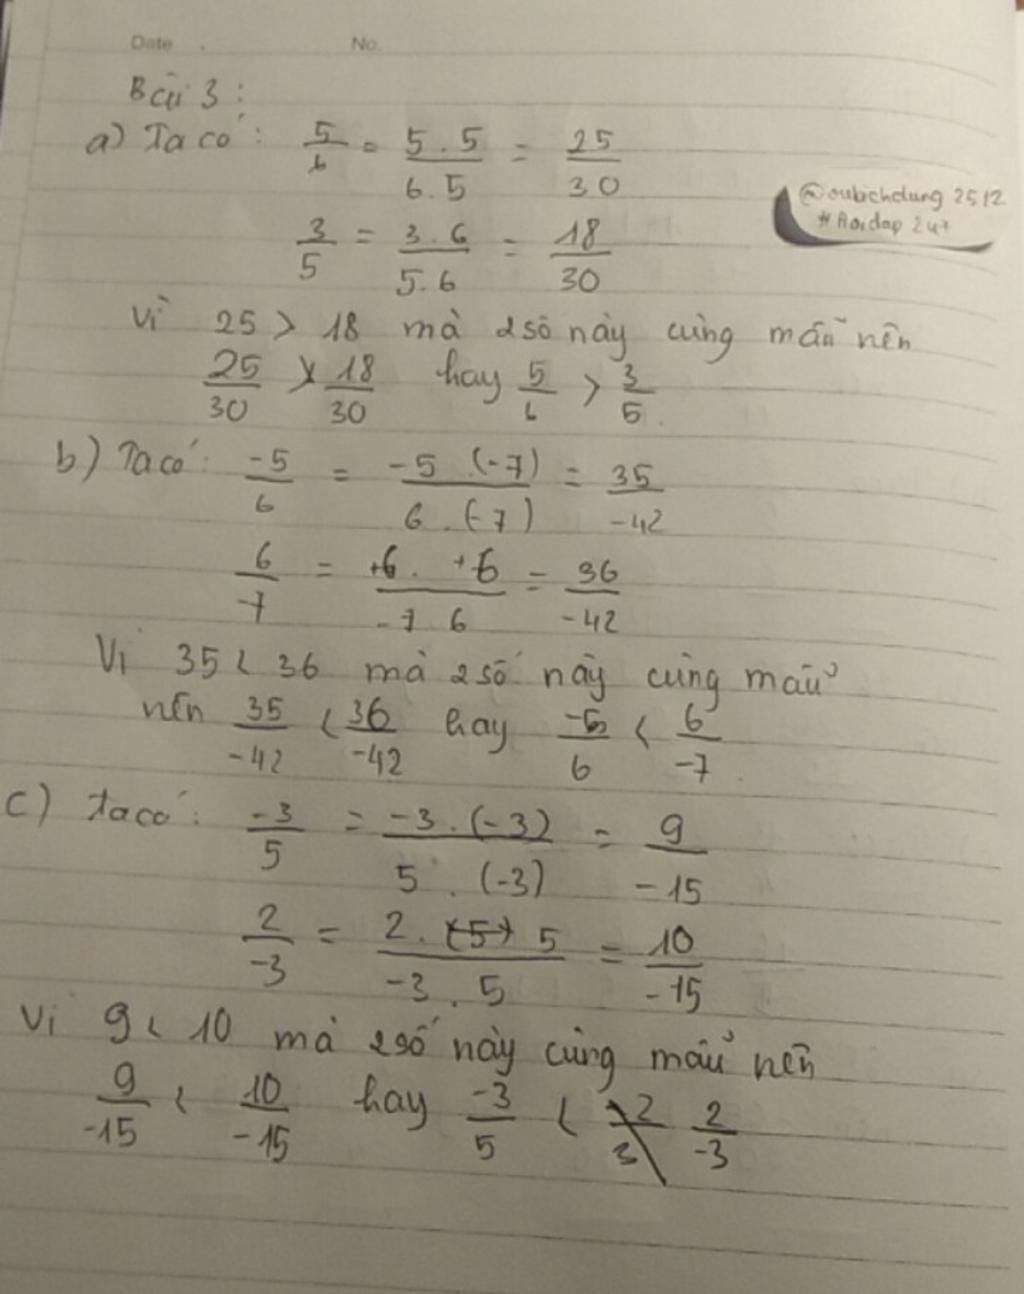 Date . No.
Bài 3:
a) Ta có: 5/6 = 5.5/6.5 = 25/30
@oubichdung 2512
#Hoidap 247
3/5 = 3.6/5.6 = 18/30
Vì 25 > 18 mà 2 số này cùng mẫu nên
25/30 > 18/30 hay 5/6 > 3/5.
b) Ta có: -5/6 = -5.(-7)/6.(-7) = 35/-42
6/-7 = +6.+6/-7.6 = 36/-42
Vì 35 < 36 mà 2 số này cùng mẫu
nên 35/-42 < 36/-42 hay -5/6 < 6/-7.
c) Ta có: -3/5 = -3.(-3)/5.(-3) = 9/-15
2/-3 = 2.5/-3.5 = 10/-15
Vì 9 < 10 mà 2 số này cùng mẫu nên
9/-15 < 10/-15 hay -3/5 < 2/-3